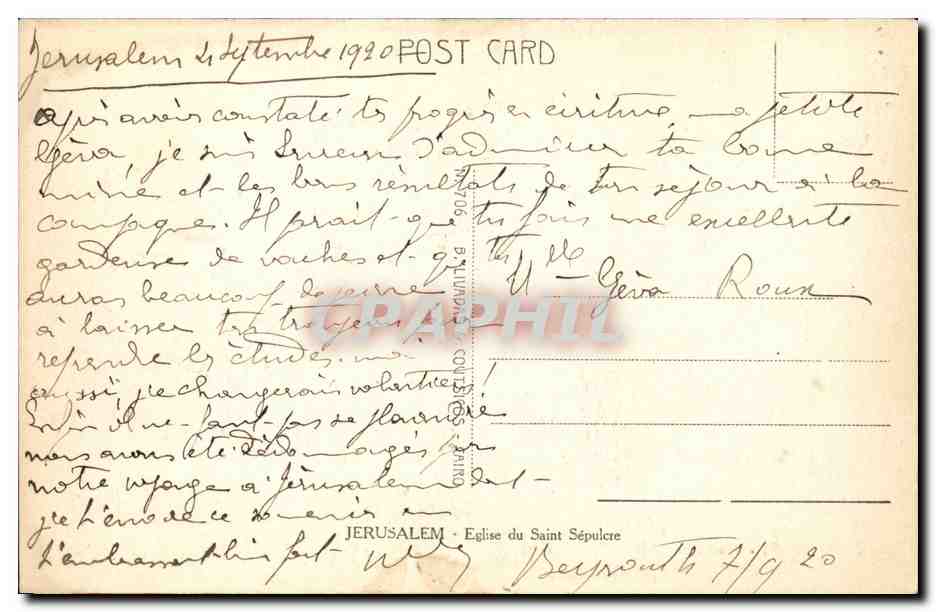 Jerusalem 4 Septembre 1920
POST CARD
Après avoir constaté tes progrès en écriture, ma petite
Géva, je suis heureux d'admirer ta bonne
mine et les bons résultats de ton séjour à la
campagne. Il parait que tu fais une excellente
gardeuse de vaches et que tu
auras beaucoup de peine
à laisser tes troupeaux pour
reprendre les études. moi
aussi, je changerais volontiers!
Enfin il ne faut pas se plaindre
nous avons été dédommagés par
notre voyage à Jérusalem dont
je t'envoie ce souvenir en
t'embrassant bien fort
Mlle Géva Roux
No 706 B. LIVADAS & COUTSICOS - CAIRO
CPARHIL
JERUSALEM - Eglise du Saint Sépulcre
Beyrouth 7/9 20